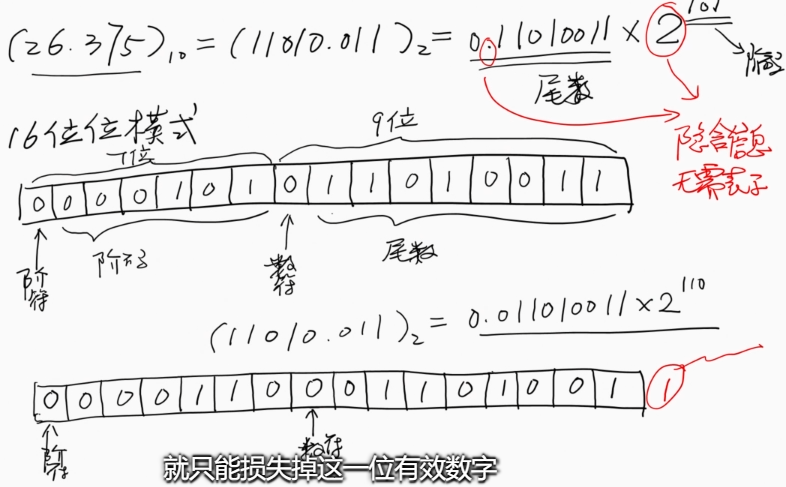 (26.375)₁₀ = (11010.011)₂ = 0.11010011 × 2¹⁰¹
尾数
阶码
隐含信息
无需表示
16位位模式
7位
9位
0 0 0 0 1 0 1 0 1 1 0 1 0 0 1 1
阶符
阶码
数符
尾数
(11010.011)₂ = 0.011010011 × 2¹¹⁰
0 0 0 0 1 1 0 0 0 1 1 0 1 0 0 1 1
阶符
数符
就只能损失掉这一位有效数字